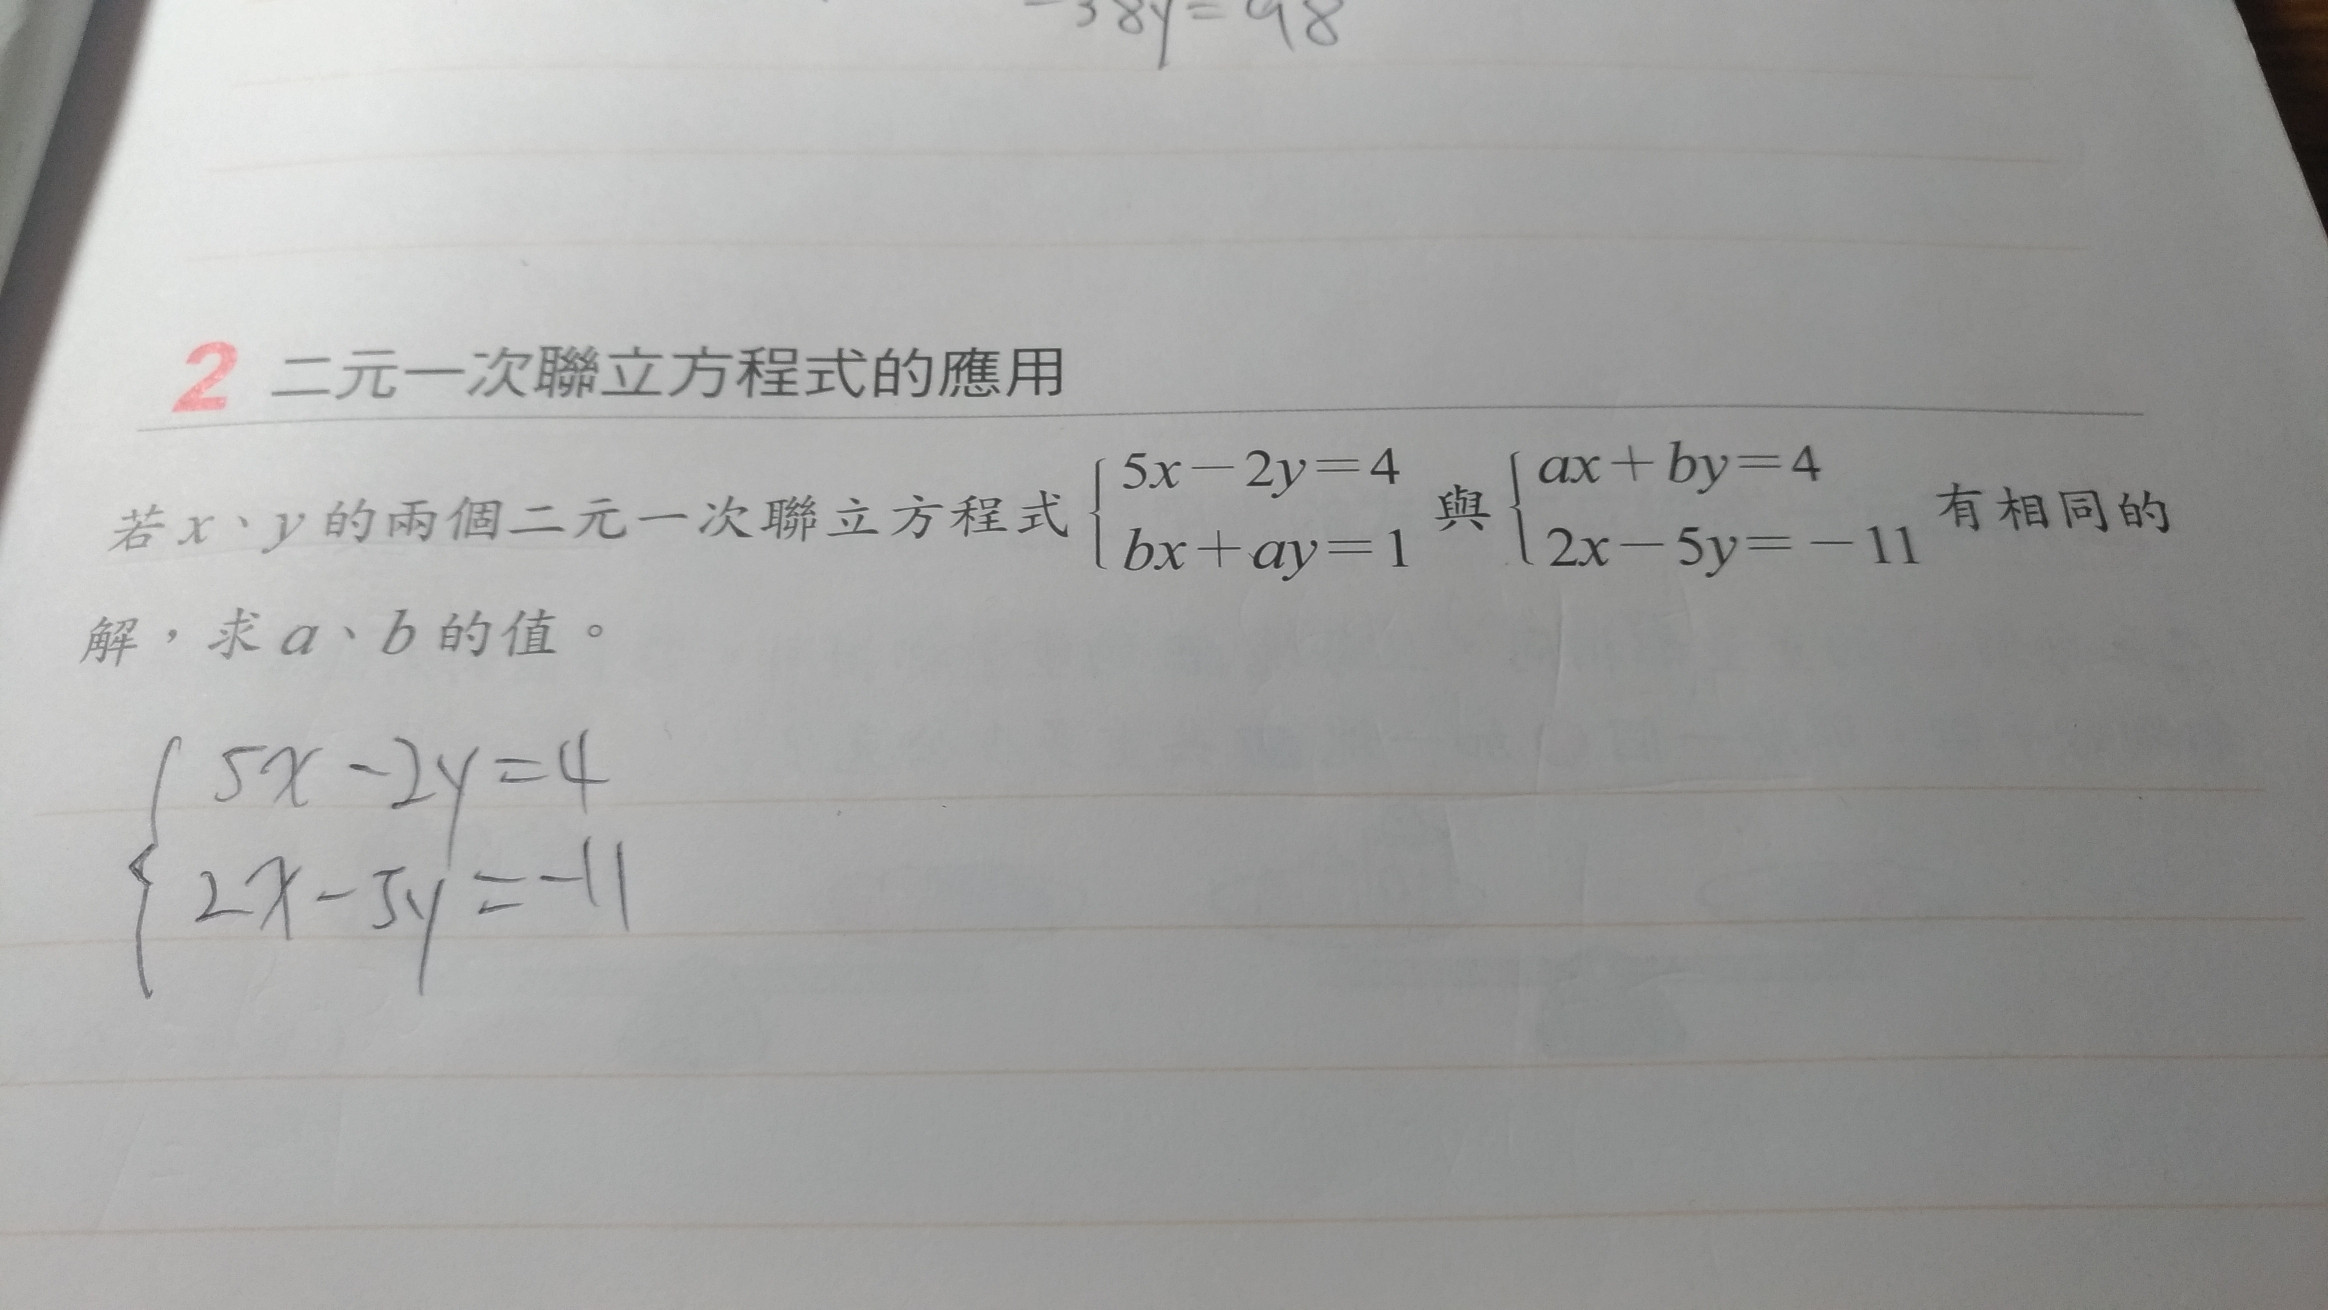 -38y=98
2 二元一次聯立方程式的應用
若x、y的兩個二元一次聯立方程式{5x-2y=4 bx+ay=1 與{ax+by=4 2x-5y=-11 有相同的
解，求a、b的值。
5x-2y=4
2x-5y=-11